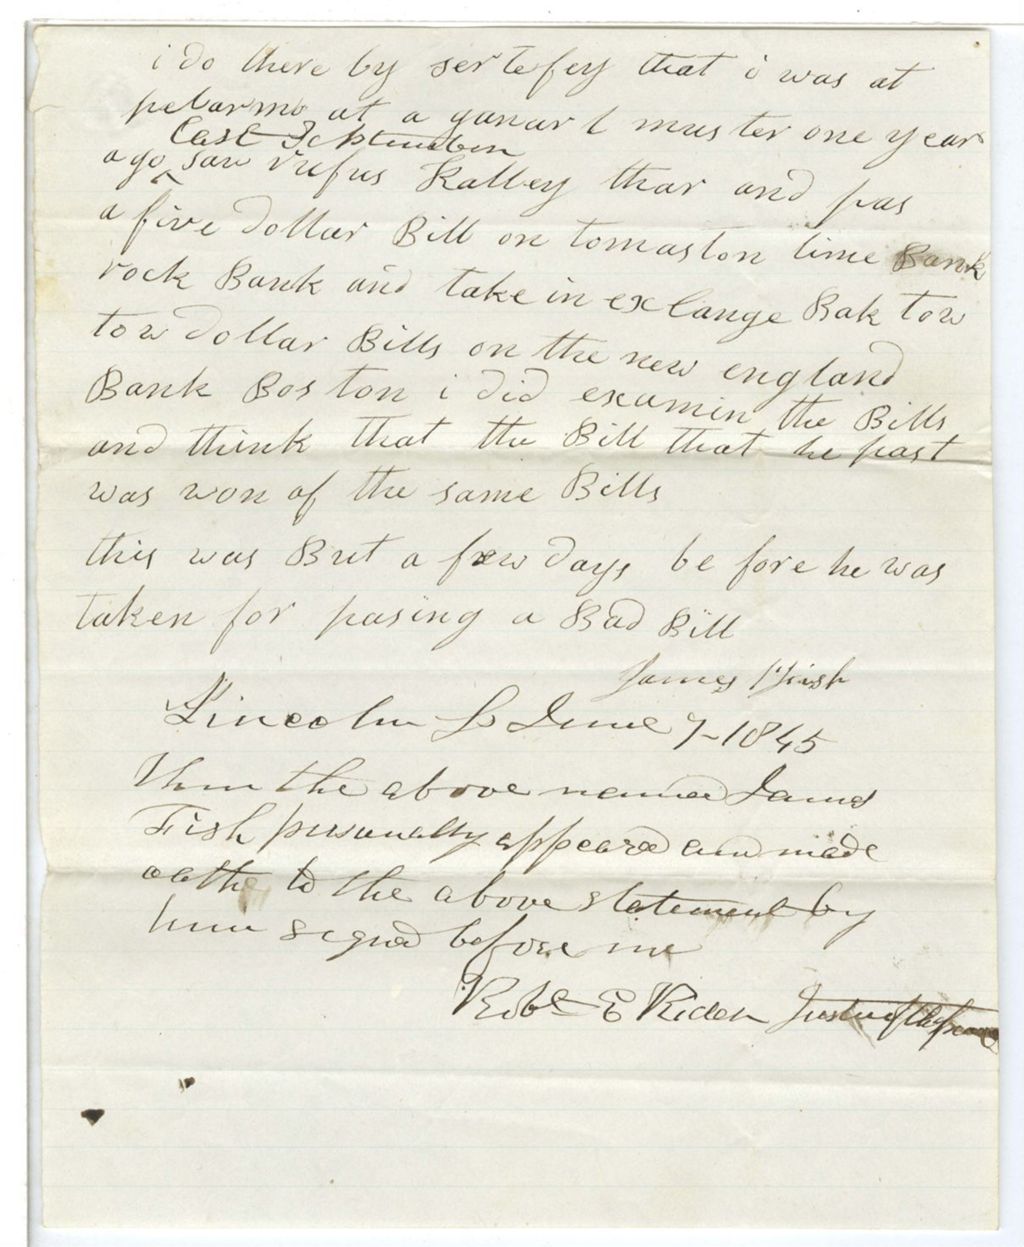 i do there by sertefey that i was at
pelarmo at a ganarl muster one year
Last September
ago saw rufus Kalley thar and pas
a five dollar Bill on tomaston lime Bank
rock Bank and take in exchange Bak tow
tow dollar Bills on the new england
Bank Boston i did examin the Bills
and think that the Bill that he past
was won of the same Bills
this was But a few days be fore he was
taken for pasing a Bad Bill
James Fish
Lincoln Ss June 7-1845
Then the above named James
Fish personally appeared and made
oathe to the above statement by
him signed before me
Robt E Rider Justice of the peace